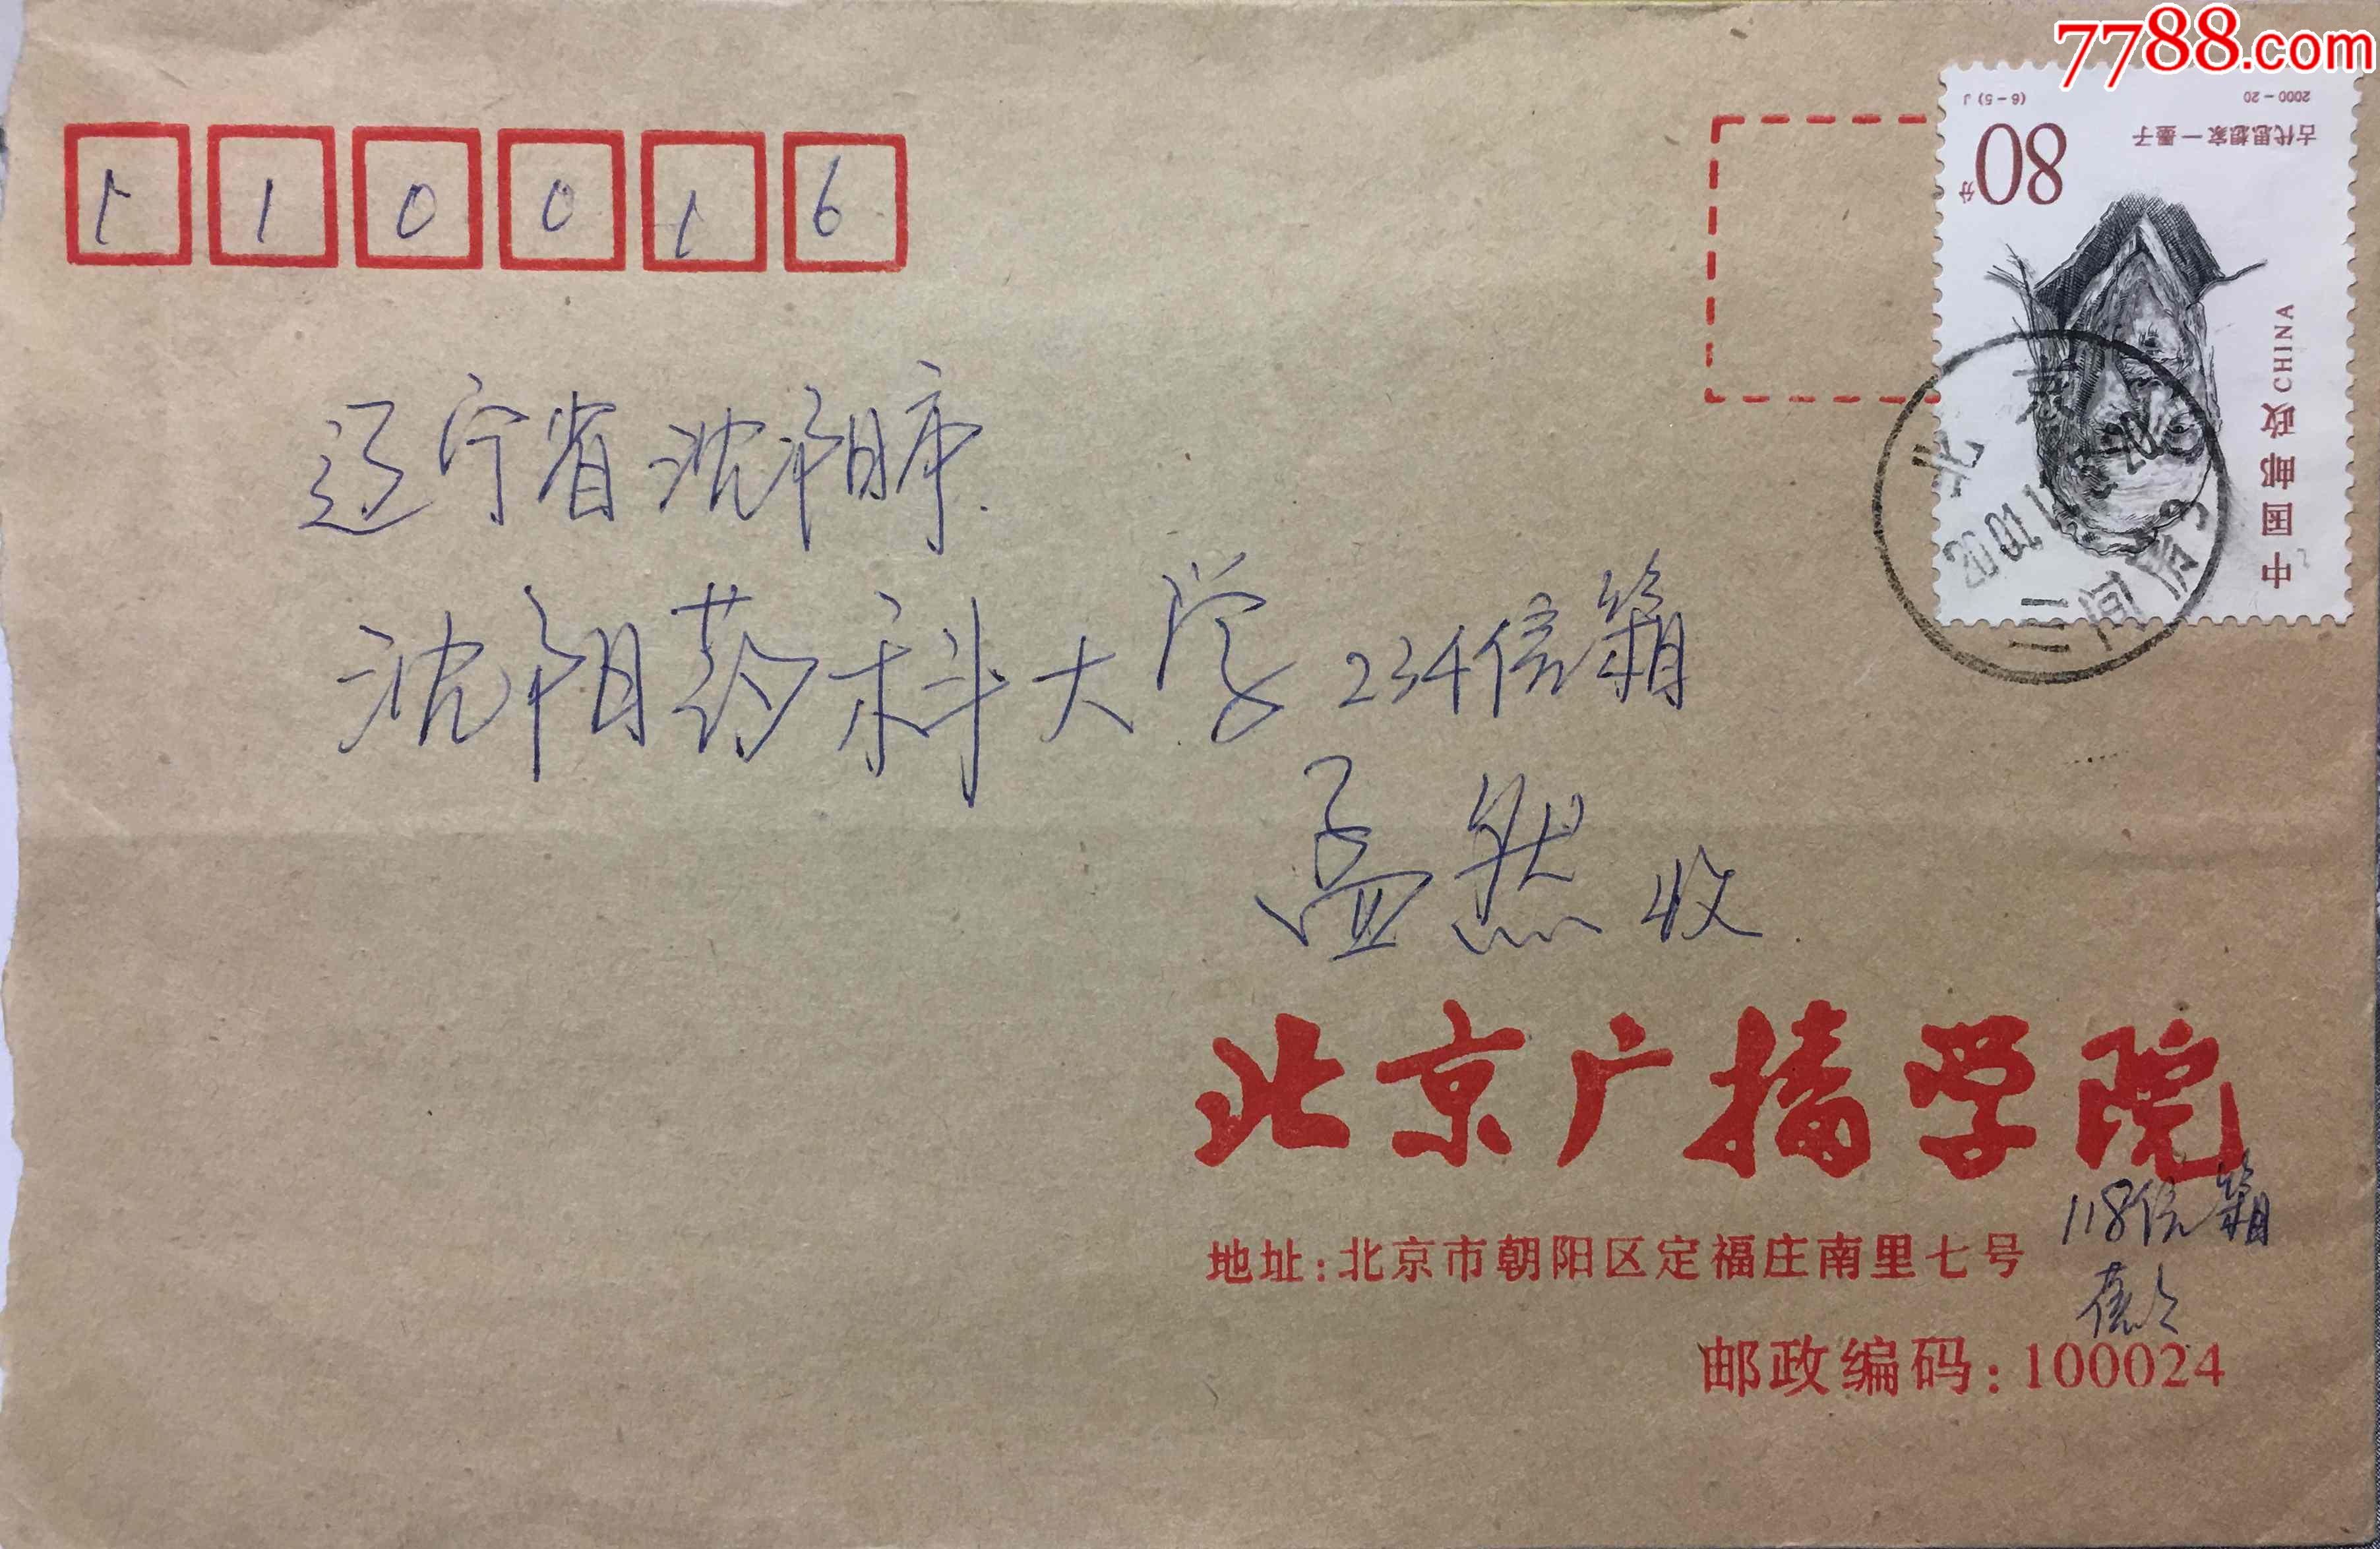 7788.com
110016
2000-20 (6-5)J
古代思想家—墨子
80分
中国邮政 CHINA
北京
2001.1
三间房
辽宁省沈阳市
沈阳药科大学234信箱
孟然 收
北京广播学院
118信箱
地址:北京市朝阳区定福庄南里七号
邮政编码:100024